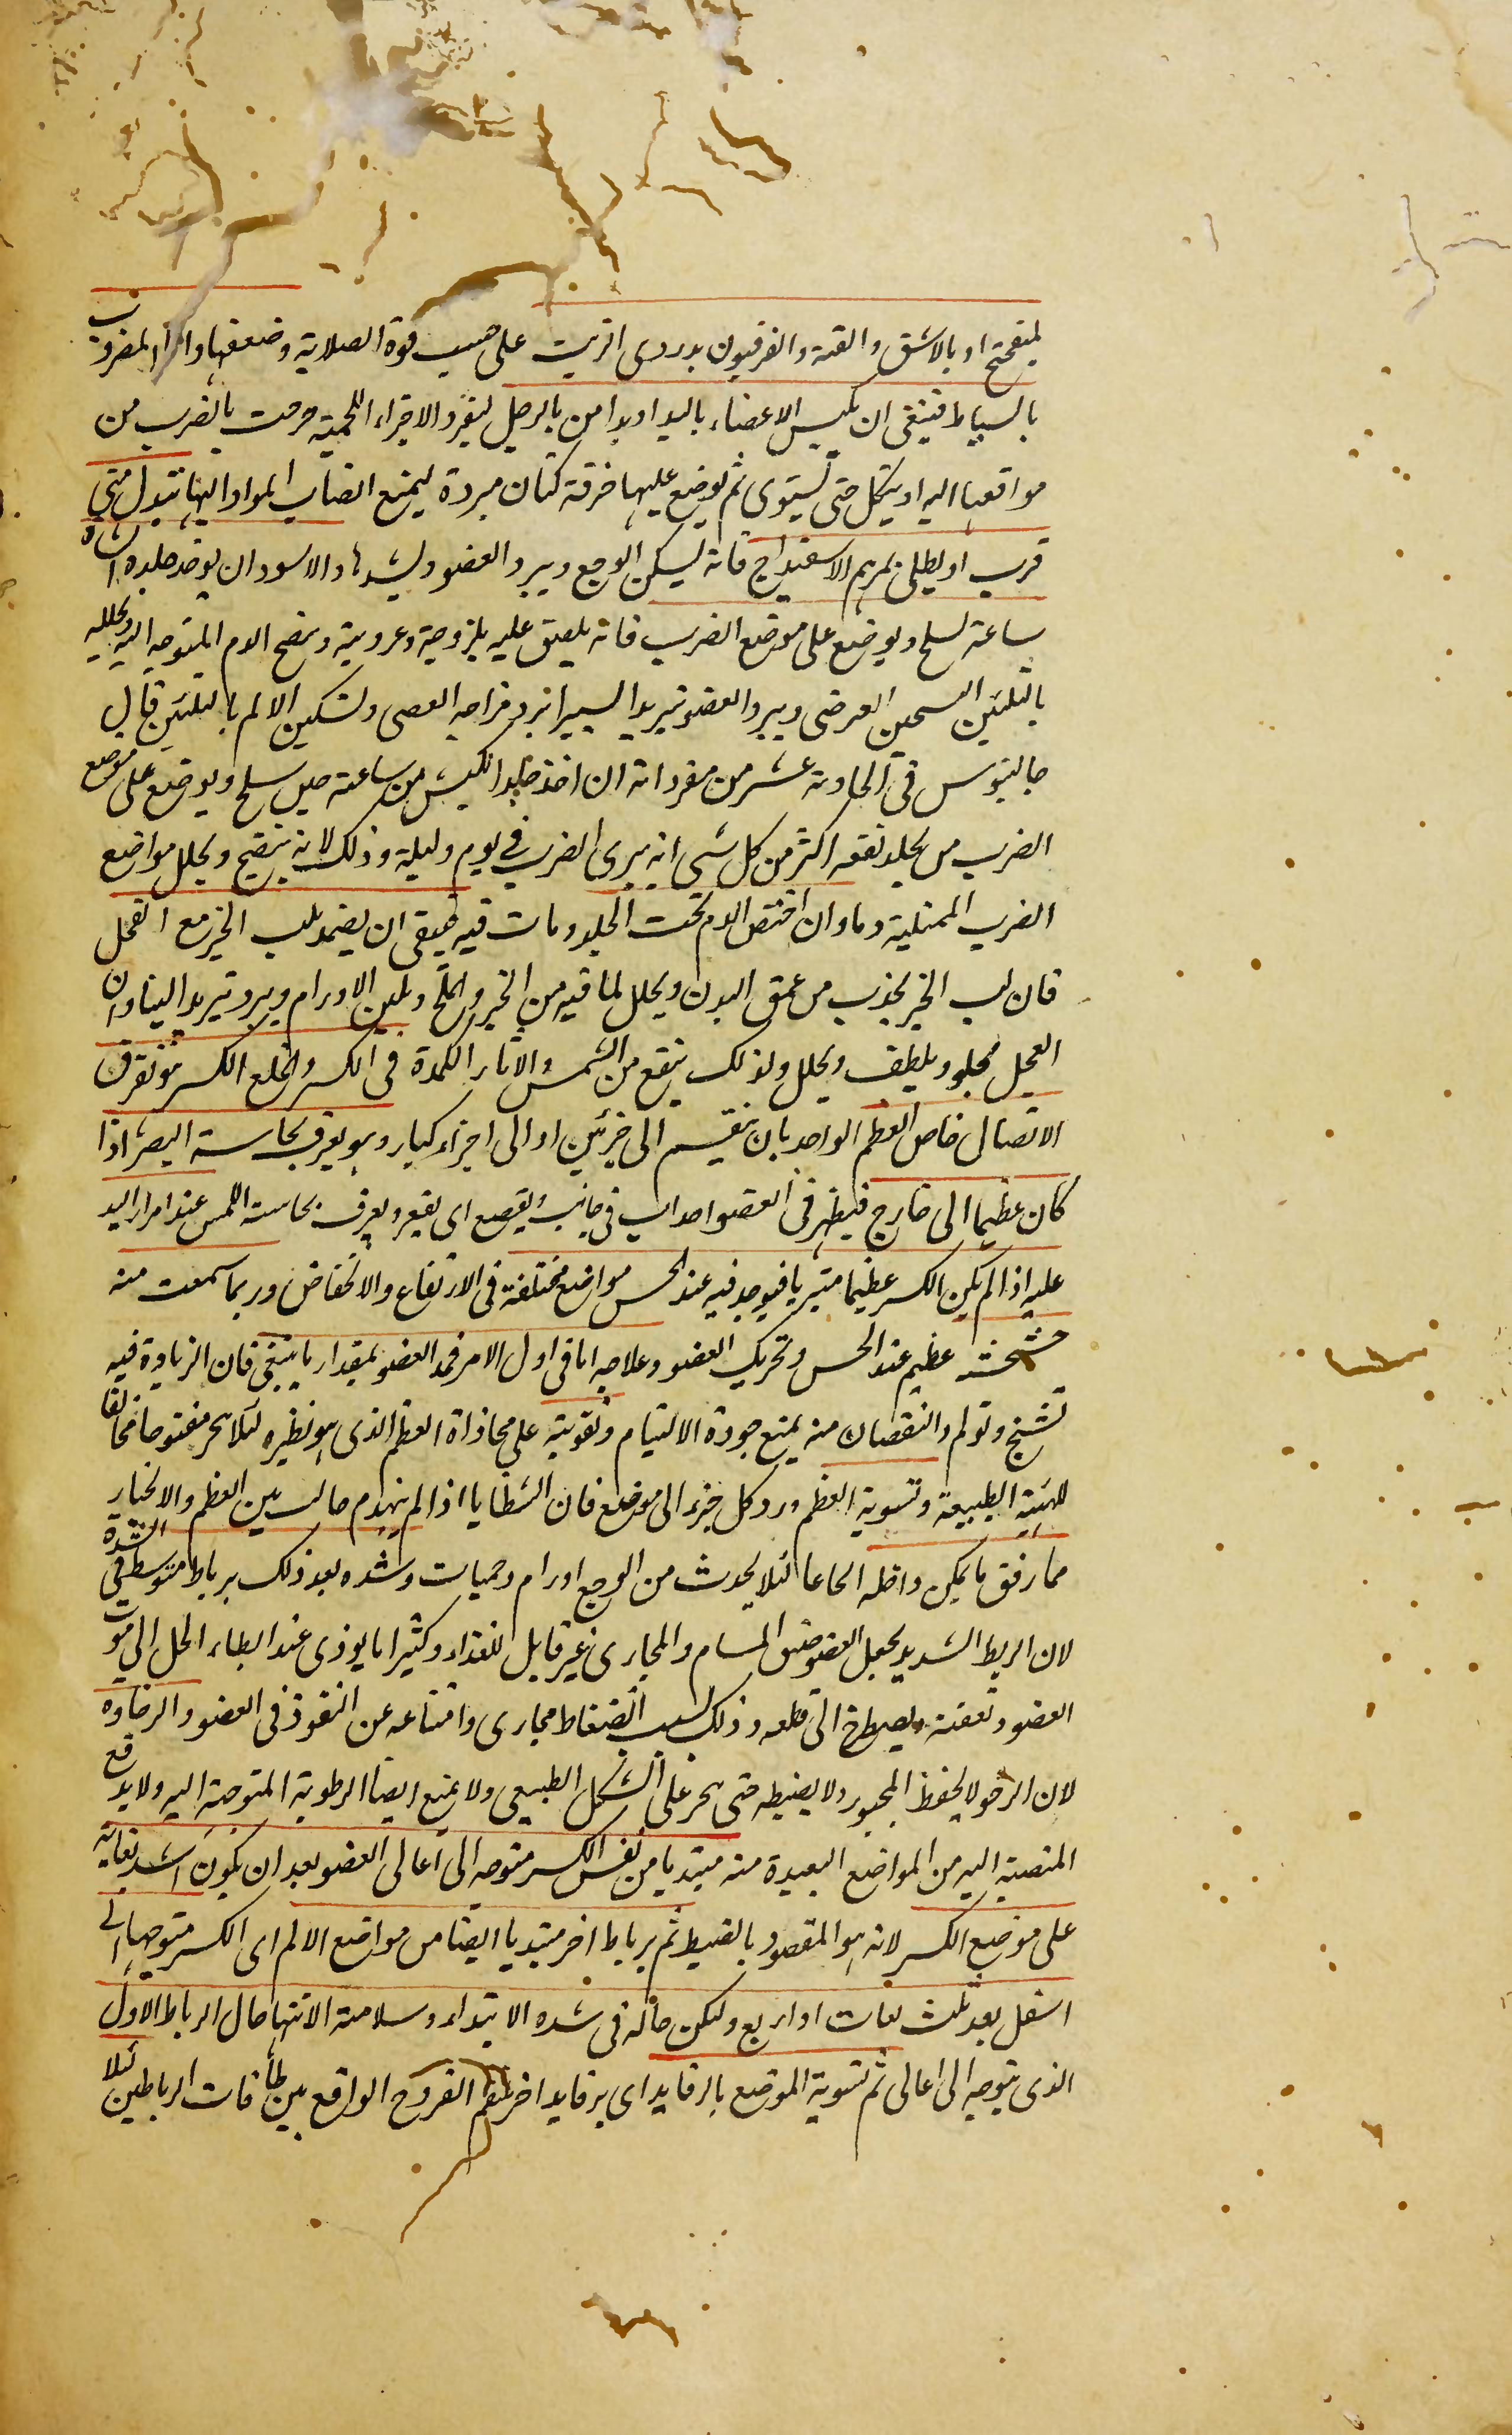 بميفختج او بالاشق والقنه والفرفيون بدردى الزيت على حسب قوة الصلابة وضعفها واما المضروب
بالسياط فينبغى ان يكبس الاعضاء باليد او بدامن بالرجل ليفرد الاجزاء اللحمية خرجت بالضرب من
مواقعها اليه او يتكل حتى يستوى ثم يوضع عليها خرقة كتان مبردة ليمنع انصاب المواد اليها تبدل متى
قرب او يطلى بمرهم الاسفيداج فانه يسكن الوجع ويبرد العضو ويشدها والاسود ان يوخذ جلده الشاة
ساعة تسلخ ويوضع على موضع الضرب فانه يلصق عليه بلزوجية وعروية وينضج الدم المتوجه اليه ويحلله
بالتليين السحين العرضى ويبرد العضو تبريدا يسيرا ببرد مزاجه العصبى وتسكين الالم بالتليين قال
جالينوس فى الحادية عشر من مفرداته ان اخذ جلد الكبش من ساعته حين سلخ ويوضع على موضع
الضرب من يجلد نفعه اكثر من كل شى انه يبرى الضرب فى يوم وليلة وذلك لانه ينضج ويحلل مواضع
الضرب الممتلية دما وان اختص الدم تحت الجلد ومات فيه فينبغى ان يضمد بلب الخبز مع الفجل
فان لب الخبز يجذب من عمق البدن ويحلل لما فيه من الخمير والملح ويلين الاورام ويبرد تبريدا لينا وان
الفجل يجلو ويلطف ويحلل ولذلك ينفع من النمش والاثار الكمدة فى الكسر والخلع الكسر هو تفرق
الاتصال خاص العظم الواحد بان ينقسم الى جزئين او الى اجزاء كبار وهو يعرف بحاسة البصر اذا
كان عظيما الى خارج فيظهر فى العضو احداب فى جانب وتقصع اى تقعير ويعرف بحاسة اللمس عند امرار اليد
عليه اذا لم يكن الكسر عظيما متبريا فيوجد فيه عند الحس مواضع مختلفة فى الارتفاع والانخفاض وربما سمعت منه
خشخشة عظيم عند الحس وتحريك العضو وعلاجه اما فى اول الامر فمد العضو بمقدار ما ينبغى فان الزيادة فيه
تشنج وتولم والنقصان منه يمنع جودة الالتيام وتقويته على محاذاة العظم الذى هو نظيره لئلا ينجبر مفتوحا مخالفا
للهيئة الطبيعة وتسوية العظم ورد كل جزء الى موضع فان الشظايا اذا لم ينهدم حالت بين العظم والانجبار
مما رفق ما يمكن واقله الحاعا لئلا يحدث من الوجع اورام وحميات وشده بعد ذلك برباط متوسط فى الشدة
لان الربط الشديد يجعل العضو ضيق المسام والمجارى غير قابل للغذاء وكثيرا ما يوذى عند ابطاء الحل الى موت
العضو وتعفنه ويضطر الى قطعه وذلك لسبب انضغاط مجارى وامتناعه عن النفوذ فى العضو والرخاوه
لان الرخو لا يحفظ المجبور ولا يضبطه حتى ينجبر على الشكل الطبيعى ولا يمنع ايضا الرطوبة المتوجهة اليه ولا يدفع
المنصبة اليه من المواضع البعيدة منه مبتديا من نفس الكسر متوجه الى اعالى العضو بعد ان يكون اشد لفافة
على موضع الكسر لانه هو المقصود بالضبط ثم برباط اخر مبتديا ايضا من مواضع الالم اى الكسر متوجها الى
اسفل بعد ثلث لفات او اربع وليكن حاله فى شده الابتداء وسلامة الانتها حال الرباط الاول
الذى يتوجه الى اعالى ثم تسوية الموضع بالرفايد اى برفايد اخر الفروج الواقع بين لفافات الرباطين لئلا